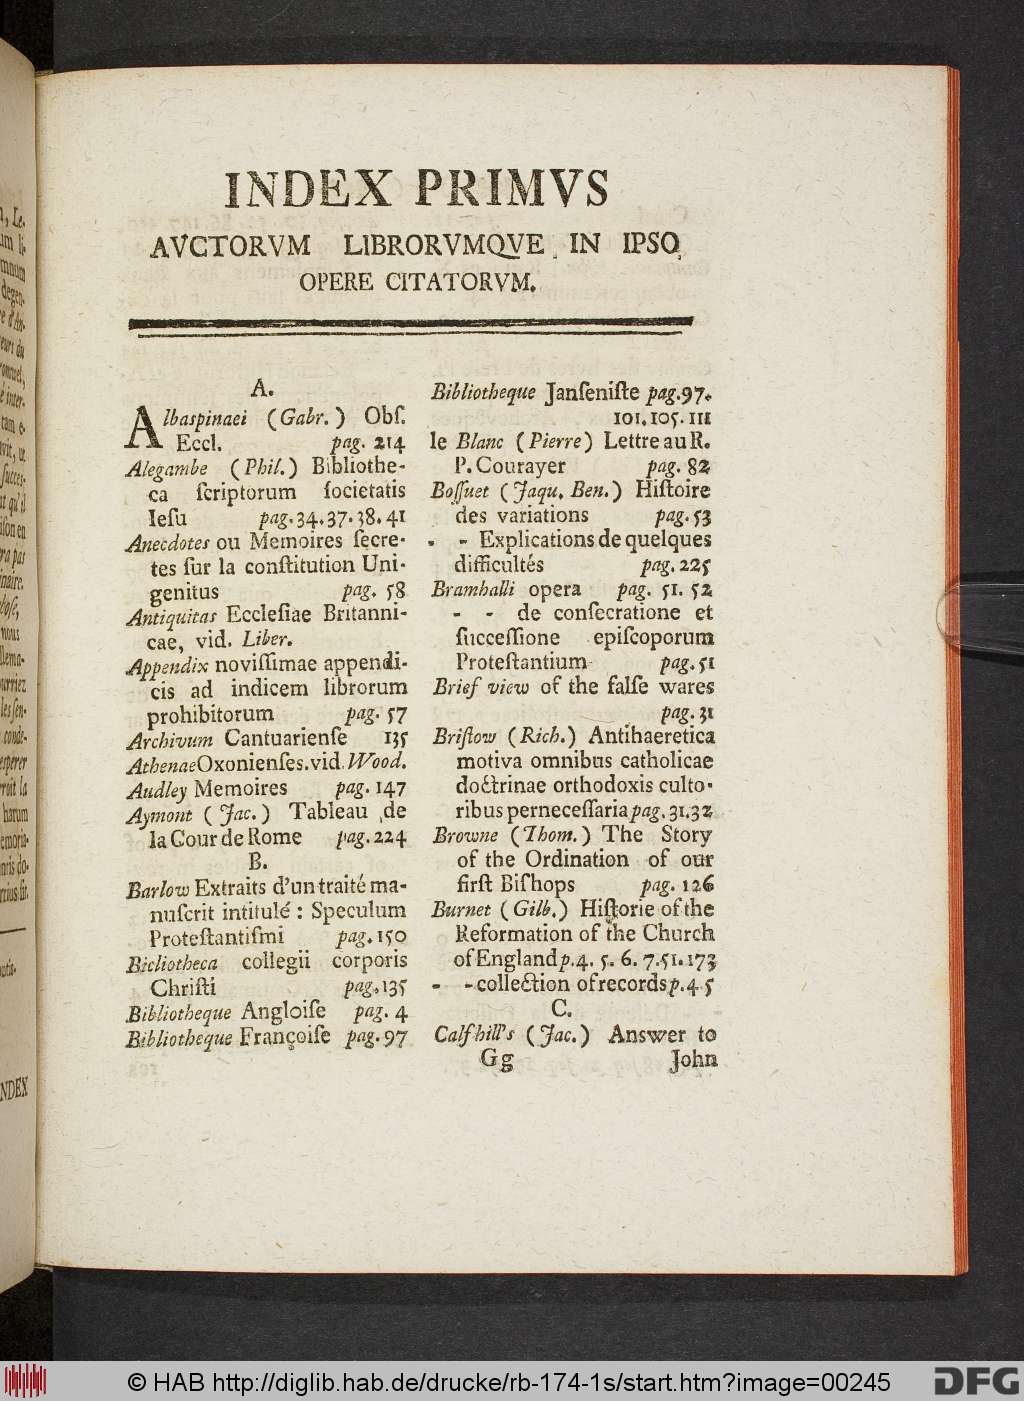 INDEX PRIMVS
AVCTORVM LIBRORVMQVE IN IPSO
OPERE CITATORVM.
A.
Albaspinaei (Gabr.) Obſ.
Eccl. pag. 214
Alegambe (Phil.) Bibliothe-
ca ſcriptorum ſocietatis
Ieſu pag. 34. 37. 38. 41
Anecdotes ou Memoires ſecre-
tes ſur la conſtitution Uni-
genitus pag. 58
Antiquitas Eccleſiae Britanni-
cae, vid. Liber.
Appendix noviſſimae appendi-
cis ad indicem librorum
prohibitorum pag. 57
Archivum Cantuarienſe 135
Athenae Oxonienſes. vid. Wood.
Audley Memoires pag. 147
Aymont (Jac.) Tableau de
la Cour de Rome pag. 224
B.
Barlow Extraits d'un traité ma-
nuſcrit intitulé : Speculum
Proteſtantiſmi pag. 150
Bicliotheca collegii corporis
Chriſti pag. 135
Bibliotheque Angloiſe pag. 4
Bibliotheque Françoiſe pag. 97
Bibliotheque Janſeniſte pag. 97.
101. 105. 111
le Blanc (Pierre) Lettre au R.
P. Courayer pag. 82
Boſſuet (Jaqu. Ben.) Hiſtoire
des variations pag. 53
- - Explications de quelques
difficultés pag. 225
Bramhalli opera pag. 51. 52
- - de conſecratione et
ſucceſſione epiſcoporum
Proteſtantium pag. 51
Brief view of the falſe wares
pag. 31
Briſtow (Rich.) Antihaeretica
motiva omnibus catholicae
doctrinae orthodoxis culto-
ribus perneceſſaria pag. 31. 32
Browne (Thom.) The Story
of the Ordination of our
firſt Biſhops pag. 126
Burnet (Gilb.) Hiſtorie of the
Reformation of the Church
of England p. 4. 5. 6. 7. 51. 173
- - collection of records p. 4 5
C.
Calfhill's (Jac.) Answer to
Gg John
NDEX
© HAB http://diglib.hab.de/drucke/rb-174-1s/start.htm?image=00245
DFG